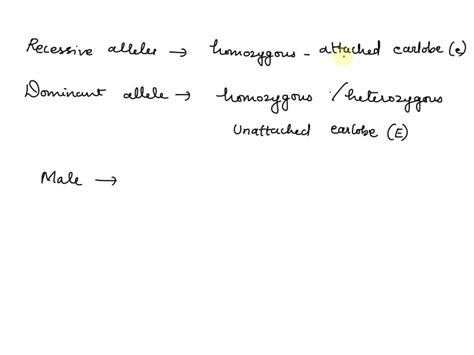 Recessive alleles → homozygous - attached earlobe (e)
Dominant allele → homozygous /heterozygous
Unattached earlobe (E)
Male →